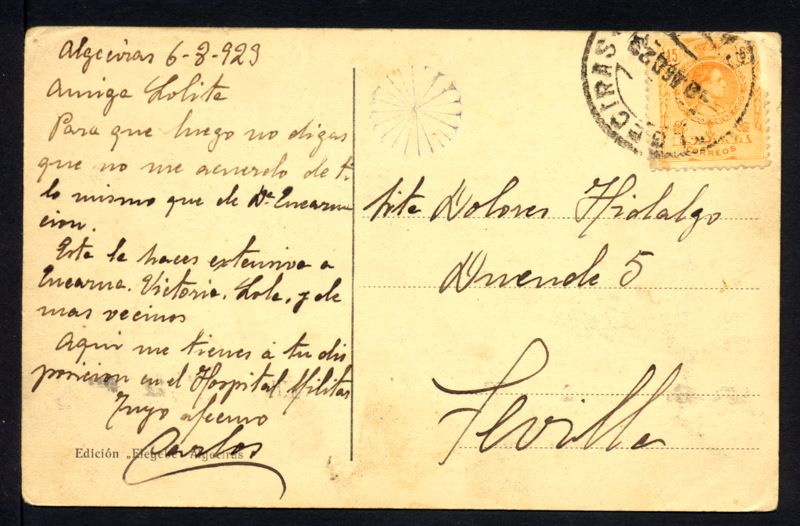 Algeciras 6-8-923
Amiga Lolita
Para que luego no digas
que no me acuerdo de ti
lo mismo que de Dª Encarna
cion.
Esta la haces extensiva a
Encarna, Victoria, Lola, y de
mas vecinos
Aqui me tienes á tu dis
posicion en el Hospital Militar
Tuyo afecmo
Carlos
Edición „Elegene" Algeciras
15
CORREOS
Srta Dolores Hidalgo
Duende 5
Sevilla